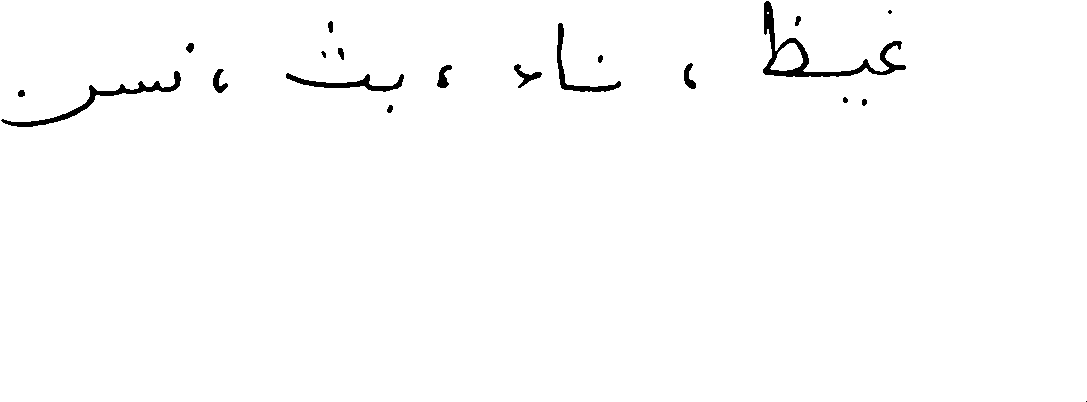 غيظ ، ناء ، بث ، نسن